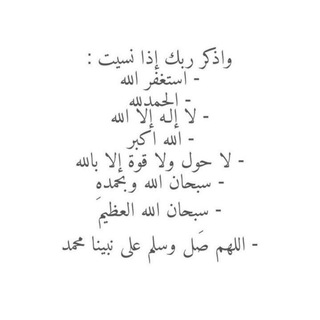 واذكر ربك إذا نسيت :
- استغفر الله
- الحمدلله
- لا إله إلا الله
- الله اكبر
- لا حول ولا قوة إلا بالله
- سبحان الله وبحمدهِ
- سبحان الله العظيمَ
- اللهم صَل وسلم على نبينا محمد